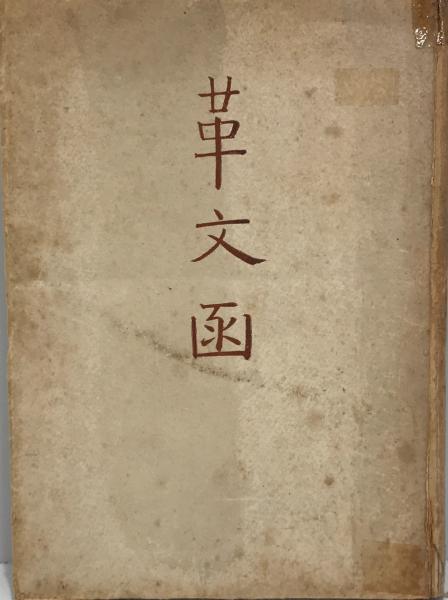 革文函